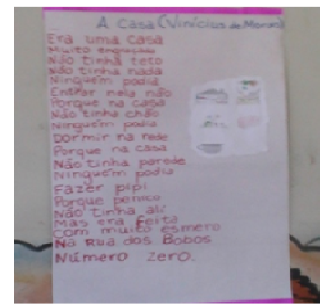 A Casa (Vinícius de Moraes)
Era uma casa
Muito engraçada
Não tinha teto
Não tinha nada
Ninguém podia
Entrar nela não
Porque na casa
Não tinha chão
Ninguém podia
Dormir na rede
Porque na casa
Não tinha parede
Ninguém podia
Fazer pipi
Porque penico
Não tinha ali
Mas era feita
Com muito esmero
Na Rua dos Bobos
Número zero.